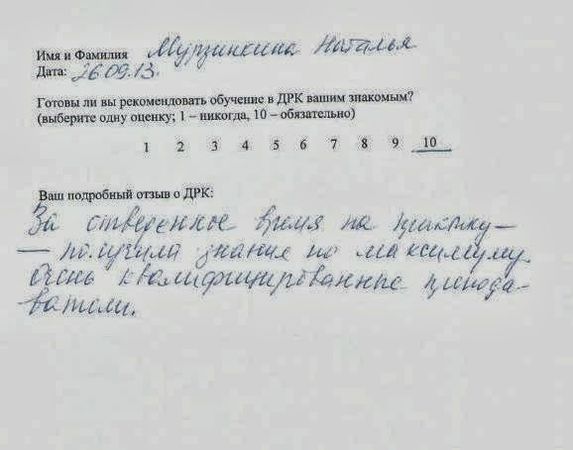 Имя и Фамилия Мурзинкина Наталья
Дата: 26.09.13.
Готовы ли вы рекомендовать обучение в ДРК вашим знакомым?
(выберите одну оценку; 1 – никогда, 10 – обязательно)
1 2 3 4 5 6 7 8 9 10
Ваш подробный отзыв о ДРК:
За отведенное время на практику –
– получила знания по максимуму.
Очень квалифицированные препода-
ватели.